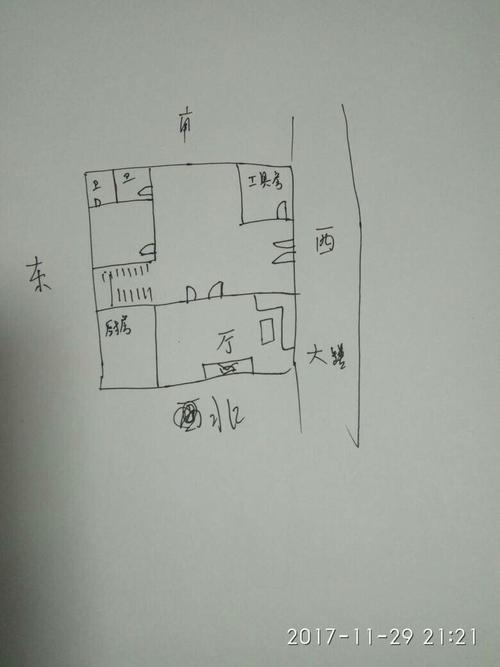 南
卫 卫
工具房
西
东
厨房
厅
大
北
2017-11-29 21:21